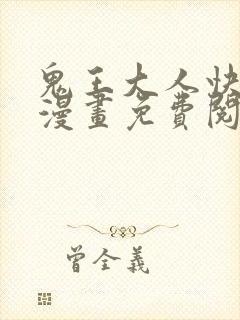 鬼王大人快
漫畫免費閱
曾全義